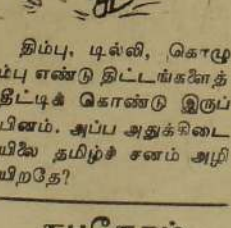 திம்பு, டில்லி, கொழு
ம்பு எண்டு திட்டங்களைத்
தீட்டிக் கொண்டு இருப்
பினம். அப்ப அதுக்கிடை
யிலை தமிழ்ச் சனம் அழி
யிறதே?